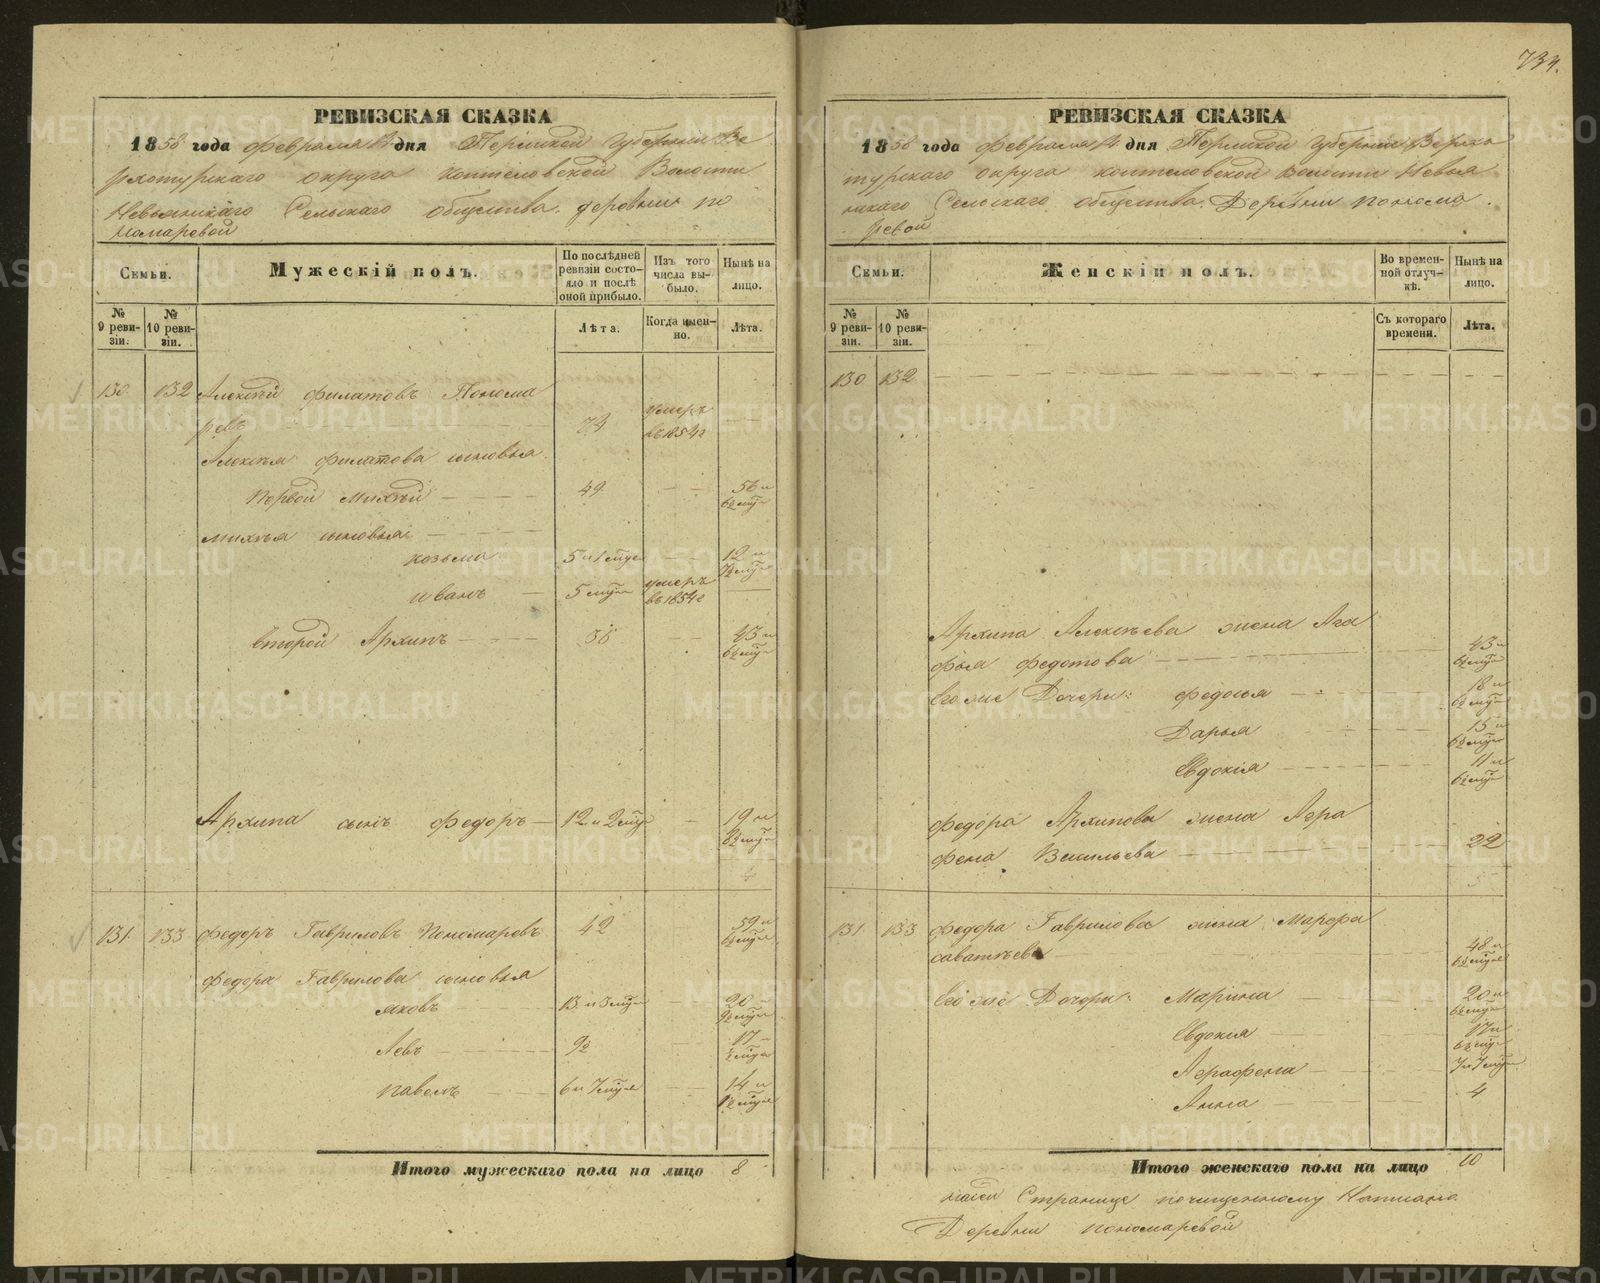 734.
РЕВИЗСКАЯ СКАЗКА
1858 года февраля 14 дня Пермской Губернии Ве
рхотурскаго округа коптеловской Волости
Невьянскаго Сельскаго общества. деревни по
номаревой
Семьи.
Мужескій полъ.
По послѣдней ревизіи состо-яло и послѣ оной прибыло.
Изъ того числа вы-было.
Нынѣ на лицо.
№ 9 реви-зіи.
№ 10 реви-зіи.
Лѣта.
Когда имен-но.
Лѣта.
130 132 Алексѣй филатовъ Понома
ревъ 74 умеръ въ 1854 г
Алексѣя филатова сыновья
Первой Михѣй 49 56 и 6½ мѣ
михѣя сыновья:
козьма 5 и 1 мѣс 12 и 7½ мѣ
иванъ 5 мѣ умеръ въ 1854 г
второй Архипъ 36 43 и 6½ мѣ
Архипа сынъ федоръ 12 и 2 мѣс 19 и 8½ мѣ
131. 133 федоръ Гавриловъ Пономаревъ 42
федора Гаврилова сыновья
яковъ 13 и 3 мѣ 20 9½ мѣ
Левъ 9½ 17 ½ мѣ
павелъ 6 и 7 мѣ 14 и 1½ мѣ
Итого мужескаго пола на лицо 8
РЕВИЗСКАЯ СКАЗКА
1858 года февраля 14 дня Пермской Губернии Верхо
турскаго округа коптеловской волости Невья
нскаго Сельскаго общества. Деревни понома
ревой
Семьи.
Женскій полъ.
Во времен-ной отлуч-кѣ.
Нынѣ на лицо.
№ 9 реви-зіи.
№ 10 реви-зіи.
Съ котораго времени.
Лѣта.
130 132
Архипа Алексѣева жена Ага
фья федотова 43 и 6½ мѣ
Его же Дочери: федосья 18 и 6½ мѣ
Дарья 15 и 6½ мѣ
Евдокія 11 и 6½ мѣ
федора Архипова жена Агра
фена Васильева 22
5
131. 133 федора Гаврилова жена Марфа
саватѣева 48 и 6½ мѣ
Его же Дочери: Марина 20 и 6½ мѣ
Евдокия 17 и 6½ мѣ
Аграфена 7 и 7 мѣ
Анна 4
Итого женскаго пола на лицо 10
Странице почищенному Написано
Деревни пономаревой
METRIKI.GASO-URAL.RU